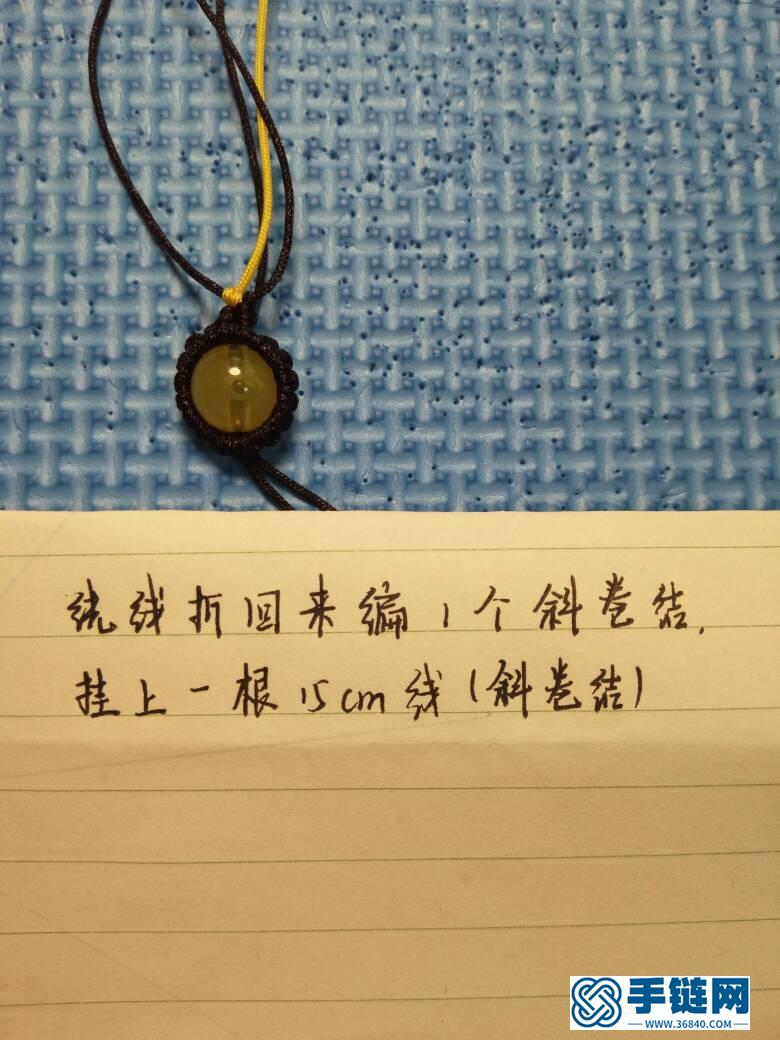 绕线折回来编1个斜卷结.
挂上一根15cm线(斜卷结)
手链网
WWW.36840.COM